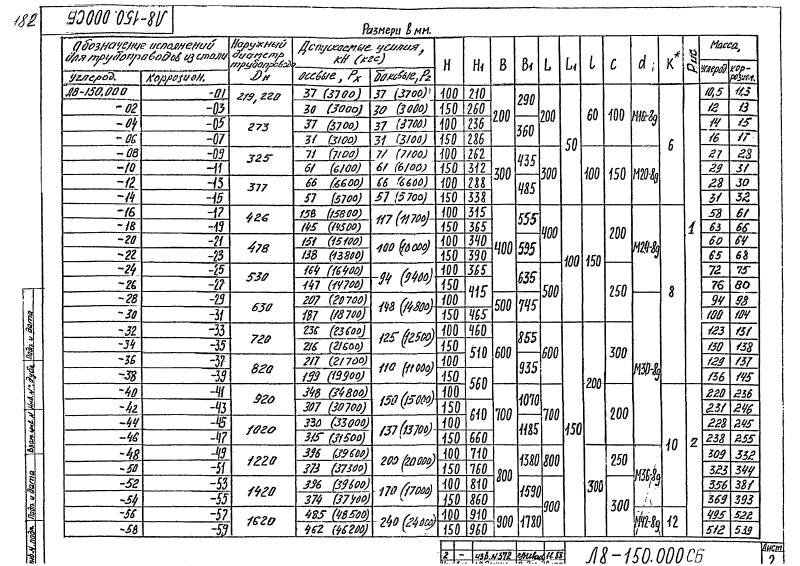 182
Л8-150.000СБ
Размеры в мм.
Обозначение исполнений для трубопроводов из стали | Наружный диаметр трубопровода Dн | Допускаемые усилия, кН (кгс) | H | H₁ | B | B₁ | L | L₁ | l | c | d | K* | Рис | Масса,
углерод. | коррозион. | осевые, Pх | боковые, Pz | углерод. | коррозион.
Л8-150.000 | -01 | 219, 220 | 37 (3700) | 37 (3700) | 100 | 210 | 200 | 290 | 200 | 50 | 60 | 100 | М16-8g | 6 | 1 | 10,5 | 11,3
-02 | -03 | 30 (3000) | 30 (3000) | 150 | 260 | 12 | 13
-04 | -05 | 273 | 37 (3700) | 37 (3700) | 100 | 236 | 360 | 14 | 15
-06 | -07 | 31 (3100) | 31 (3100) | 150 | 286 | 16 | 17
-08 | -09 | 325 | 71 (7100) | 71 (7100) | 100 | 262 | 300 | 435 | 300 | 100 | 150 | М20-8g | 27 | 28
-10 | -11 | 61 (6100) | 61 (6100) | 150 | 312 | 29 | 31
-12 | -13 | 377 | 66 (6600) | 66 (6600) | 100 | 288 | 485 | 28 | 30
-14 | -15 | 57 (5700) | 57 (5700) | 150 | 338 | 31 | 32
-16 | -17 | 426 | 158 (15800) | 117 (11700) | 100 | 315 | 400 | 555 | 400 | 100 | 150 | 200 | М24-8g | 8 | 58 | 61
-18 | -19 | 145 (14500) | 150 | 365 | 63 | 66
-20 | -21 | 478 | 151 (15100) | 100 (10000) | 100 | 340 | 595 | 60 | 64
-22 | -23 | 138 (13800) | 150 | 390 | 65 | 68
-24 | -25 | 530 | 164 (16400) | 94 (9400) | 100 | 365 | 635 | 500 | 250 | 72 | 75
-26 | -27 | 147 (14700) | 150 | 415 | 76 | 80
-28 | -29 | 630 | 207 (20700) | 148 (14800) | 100 | 500 | 745 | 94 | 98
-30 | -31 | 187 (18700) | 150 | 465 | 100 | 104
-32 | -33 | 720 | 236 (23600) | 125 (12500) | 100 | 460 | 600 | 855 | 600 | 150 | 200 | 300 | М30-8g | 123 | 131
-34 | -35 | 216 (21600) | 150 | 510 | 130 | 138
-36 | -37 | 820 | 217 (21700) | 110 (11000) | 100 | 935 | 129 | 137
-38 | -39 | 199 (19900) | 150 | 560 | 136 | 145
-40 | -41 | 920 | 348 (34800) | 150 (15000) | 100 | 700 | 1070 | 700 | 200 | 10 | 2 | 220 | 236
-42 | -43 | 307 (30700) | 150 | 610 | 231 | 246
-44 | -45 | 1020 | 330 (33000) | 137 (13700) | 100 | 1185 | 228 | 245
-46 | -47 | 315 (31500) | 150 | 660 | 238 | 255
-48 | -49 | 1220 | 396 (39600) | 200 (20000) | 100 | 710 | 800 | 1380 | 800 | 300 | 250 | М36-8g | 309 | 332
-50 | -51 | 373 (37300) | 150 | 760 | 323 | 344
-52 | -53 | 1420 | 396 (39600) | 170 (17000) | 100 | 810 | 1590 | 900 | 300 | 356 | 381
-54 | -55 | 374 (37400) | 150 | 860 | 369 | 393
-56 | -57 | 1620 | 485 (48500) | 240 (24000) | 100 | 910 | 900 | 1780 | М42-8g | 12 | 495 | 522
-58 | -59 | 462 (46200) | 150 | 960 | 512 | 539
Подп. и дата
Взам. инв. № Инв. № дубл.
Подп. и дата
Инв. № подл.
2 - изв. N572
Л8-150.000СБ
Лист
2